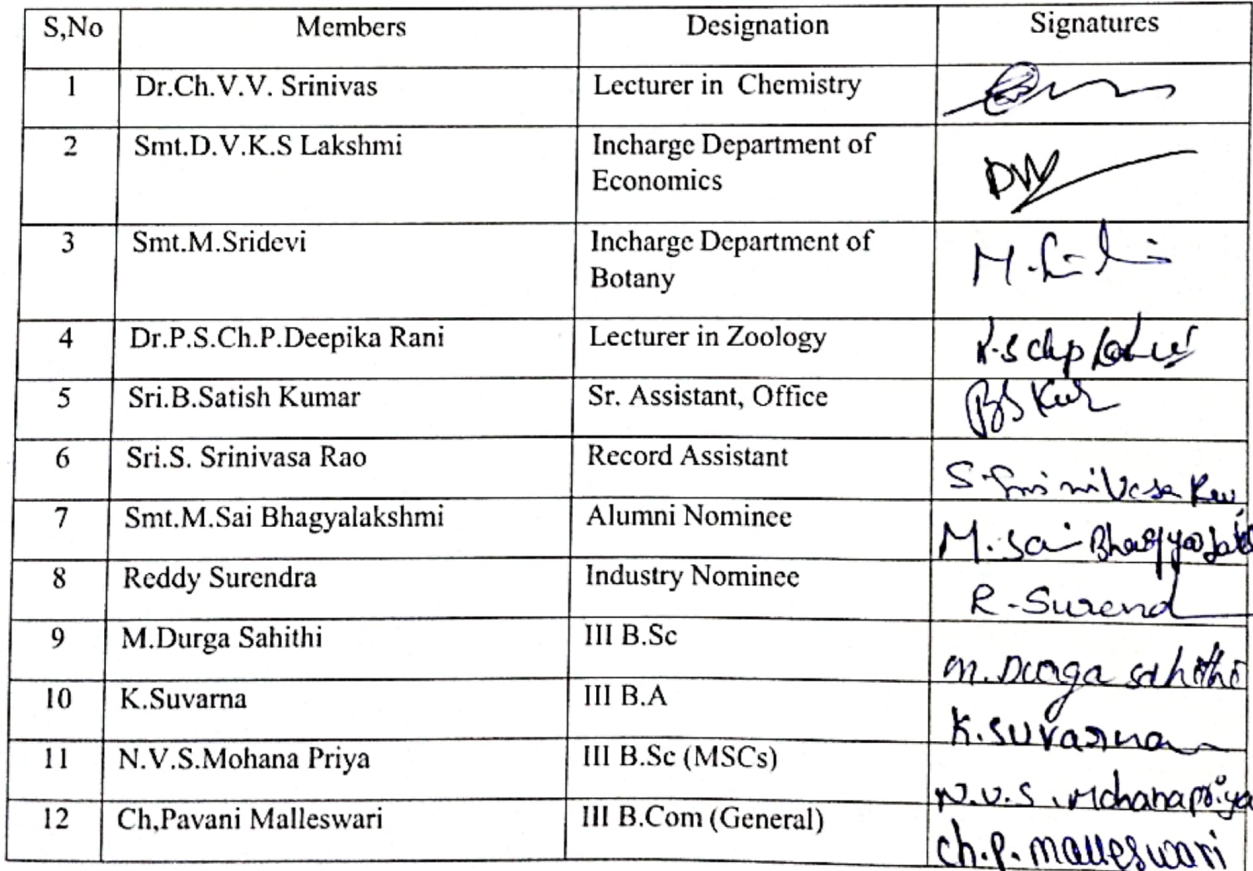 S,No Members Designation Signatures
1 Dr.Ch.V.V. Srinivas Lecturer in Chemistry
2 Smt.D.V.K.S Lakshmi Incharge Department of
Economics
3 Smt.M.Sridevi Incharge Department of
Botany
4 Dr.P.S.Ch.P.Deepika Rani Lecturer in Zoology
5 Sri.B.Satish Kumar Sr. Assistant, Office
6 Sri.S. Srinivasa Rao Record Assistant
7 Smt.M.Sai Bhagyalakshmi Alumni Nominee M. Sai
8 Reddy Surendra Industry Nominee R. Surend
9 M.Durga Sahithi III B.Sc M. Durga Sahithi
10 K.Suvarna III B.A K. Suvarna
11 N.V.S.Mohana Priya III B.Sc (MSCs) N.V.S. Mohanapriya
12 Ch,Pavani Malleswari III B.Com (General) Ch.P. Malleswari